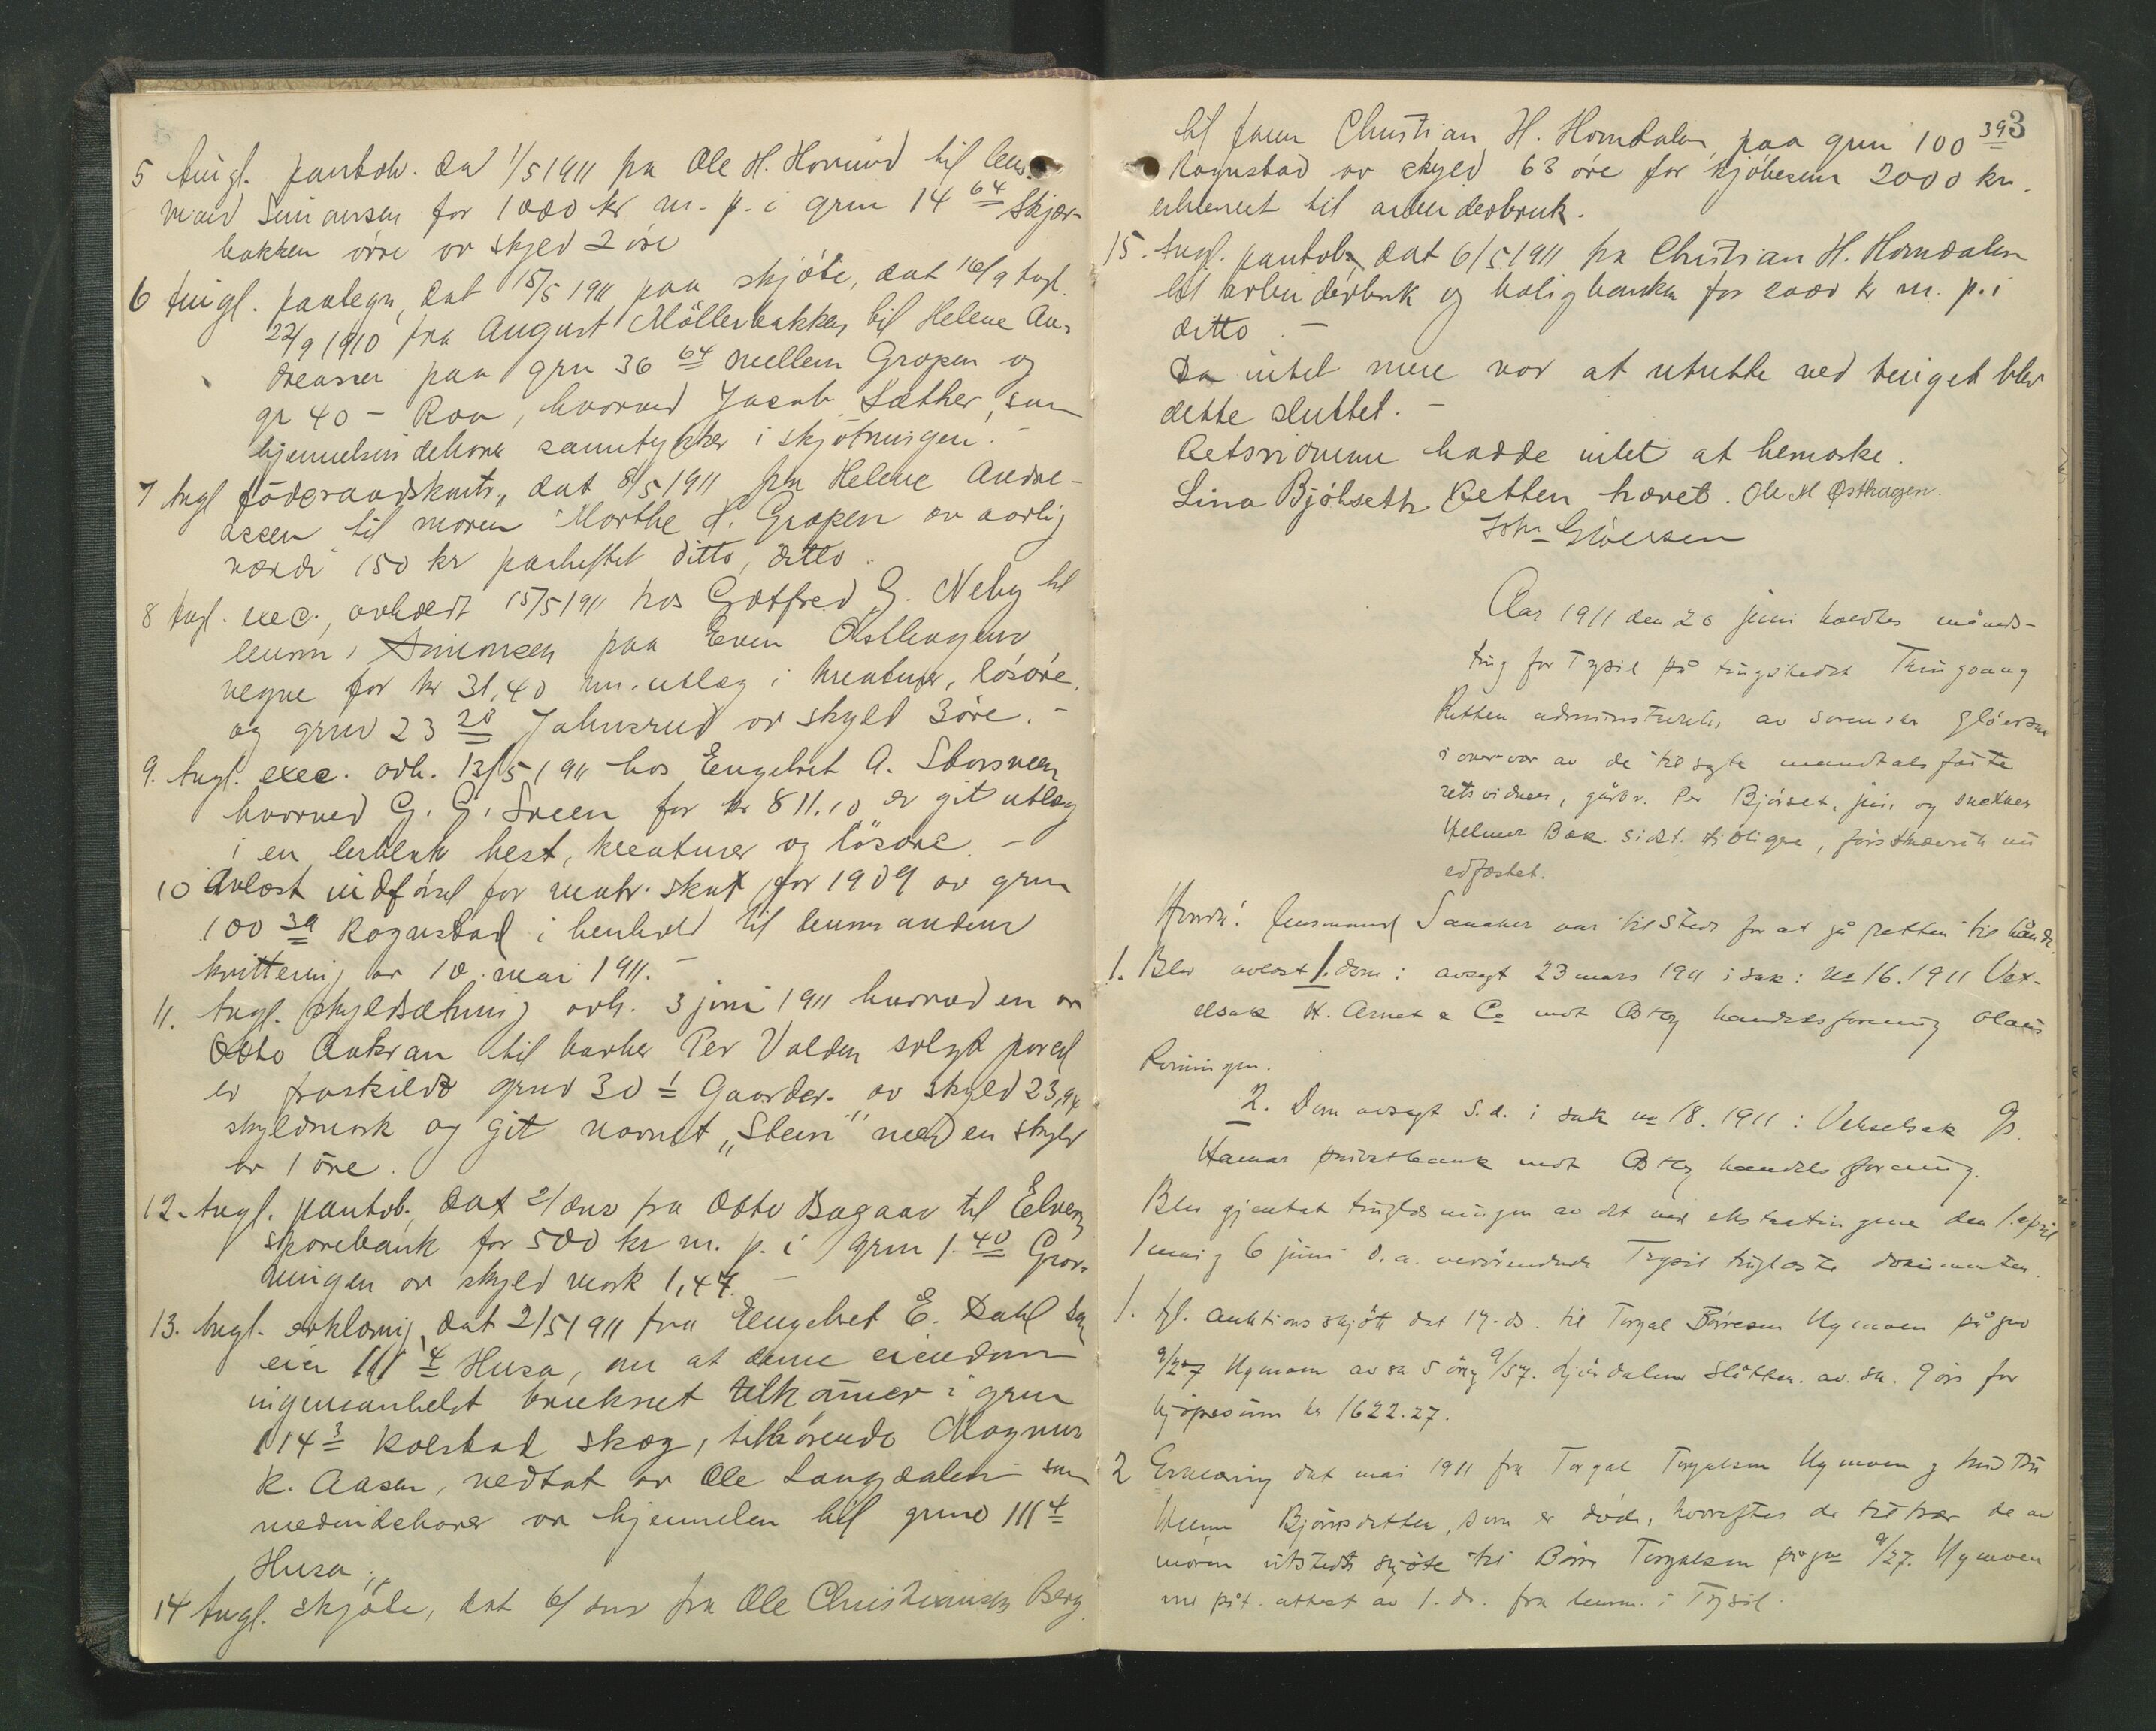 5 tingl. pantobl. dat 1/5 1911 fra Ole H. Horund til lens-
mand Simonsen for 1000 kr m. p. i grnr 14 64 Skjær-
bakken övre av skyld 2 öre
6 tingl. paategn, dat 15/5 1911 paa skjöte, dat 16/9 tingl.
22/9 1910 fra August Möllerbakken til Helene An-
dreassen paa grnr 36 64 mellem Gropen og
gr 40 - Roa, hvorved Jacob Sæther, som
hjemmelsindehaver samtykker i skjötningen. -
7 tngl föderaadskontr., dat 8/5 1911 fra Helene Andre-
assen til moren Marthe H. Gropen av aarlig
værdi 150 kr paaheftet ditto, ditto.
8 tngl. exec., avholdt 15/5 1911 hos Gotfred G. Neby til
lensm. Simonsen paa Even Østhagens
vegne for kr 31,40 m. utlæg i kreaturer, lösöre,
og grnr 23 20 Jahnsrud av skyld 3 öre. -
9. tngl. exec. avh. 13/5 1911 hos Engebret A. Storsveen
hvorved G. G. Sveen for kr 811.10 er git utlæg
i en lerblak hest, kreaturer og lösöre. -
10 Avlæst utdförsel for matr. skat for 1909 av grnr
100 39 Rognstad i henhold til lensmandens
kvittering av 10. mai 1911. -
11. tngl. skyldsætning avh. 3 juni 1911 hvorved en av
Otto Aakran til barber Per Volden solgt parcel
er fraskildt grnr 30 1 Gaarder av skyld 23,94
skyldmark og git navnet "Stein" med en skyld
av 1 öre.
12. tngl. pantobl. dat 2/ dns fra Otto Bagaas til Elverum
sparebank for 500 kr m. p. i grnr 1. 40 Grav-
ningen av skyld mark 1,47. -
13. tngl. erklæring, dat 2/5 1911 fra Engebret E. Dahl som
eier 111 4 Husa, om at denne eiendom
ingensomhelst bruksret tilkommer i grnr
114 3 Kolstad skog, tilhörende Magnus
K. Aasen, vedtat av Ole Langdalen som
medindehaver av hjemmelen til grnr 111 4
Husa.
14 tngl. skjöte, dat 6/ dns fra Ole Christiansen Berg
3
til form Christian H. Horndalen paa grnr 100 39
Rognstad av skyld 63 öre for kjöbesum 2000 kr.
erhvervet til arbeiderbruk.
15. tngl. pantobl. dat 6/5 1911 fra Christian H. Horndalen
til arbeiderbruk og boligbanken for 2000 kr m. p. i
ditto. -
Da intet mere var at utrette ved tinget blev
dette sluttet. -
Retsvidnene hadde intet at bemerke.
Lina Bjölseth. Retten hævet. Ole M Østhagen.
Joh. Glöersen
Aar 1911 den 20 juni holdtes måneds-
ting for Trysil på tingstedet Tingvang
Retten administrertes av sorenskr Glöersen
i overvær av de tilsagte mandtalsförte
retsvidner, gårbr. Per Bjørset, jun. og snekker
Helmer Bæk. Sidst. tidligere, förstnævnte nu
edfæstet.
Hvorda! lensmand Sanaker var tilstede for at gå retten til hånde.
1. Blev avlæst 1. dom: avsagt 23 mars 1911 i sak: no 16. 1911 Vex-
elsak H. Arnet & Co mot handelsforening Olaus
2. Dom avsagt s.d. i sak no 18. 1911: Vekselsak
Hamar privatbank mot handelsforening.
Blev gjentat tinglæsningen av det ved ekstratingene den 1. april
1 mai og 6 juni d. a. Trysil tinglæste dokumenter.
1. tgl. auktionsskjöte dat 17. ds. til Torgal Börresen Nymoen på gno
9/27 Nymoen av sk 5 öre og 9/57. Slåtten. av. sk. 9 öre for
kjöpesum kr 1622.27.
2 Erklæring dat mai 1911 fra Torgal Torgalsen Nymoen og hustru
Björnsdatter, som er döde, hvorefter de tiltrær de av
moren utstedte skjöte til Börre Torgalsen på gno 9/27. Nymoen
med påt. attest av 1. ds. fra lensm. i Trysil.